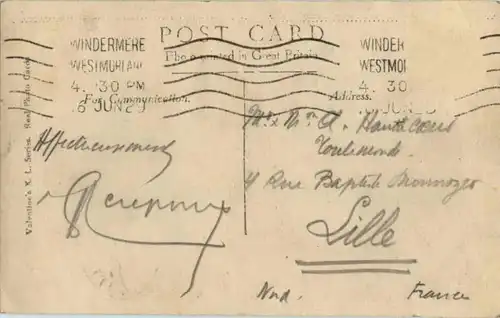 WINDERMERE
WESTMORLAND
4. 30 PM
6 JUN 29
POST CARD
The address
printed in Great Britain.
WINDER
WESTMO
4. 30
JUN 29
For Communication.
Address.
Affectueusement
Mr & Me A.
Toulemonde
4 Rue Baptiste Monnoyer
Lille
Nord.
France
Valentine's X. L. Series. Real Photo Card.